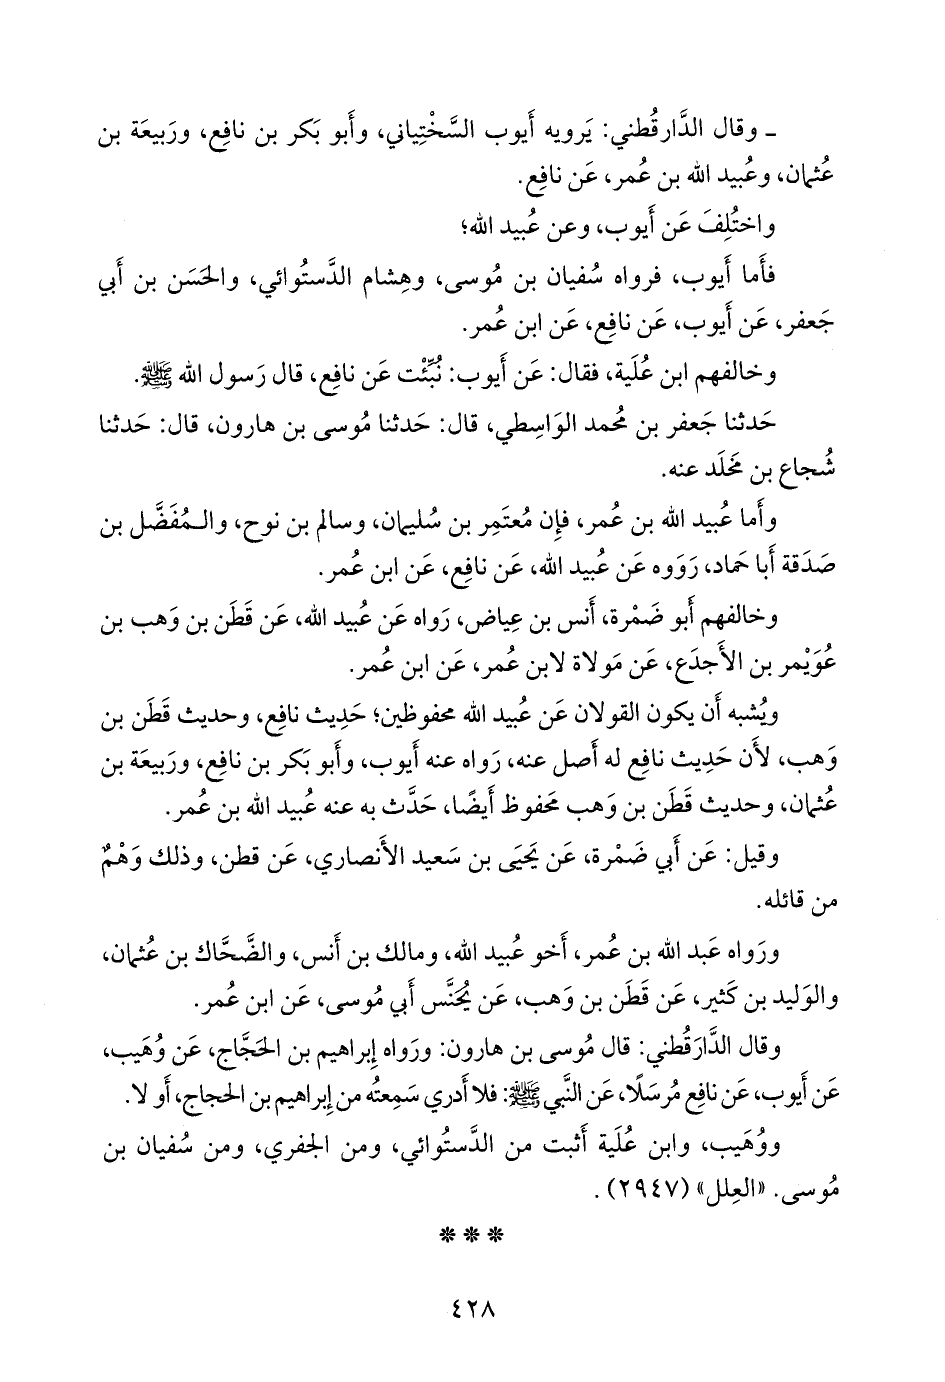 ـ وقال الدَّارقُطني: يَرويه أَيوب السَّخْتِياني، وأَبو بَكر بن نافِع، ورَبيعَة بن
عُثمان، وعُبيد الله بن عُمر، عَن نافِع.
واختُلِفَ عَن أَيوب، وعن عُبيد الله؛
فأَما أَيوب، فرواه سُفيان بن مُوسى، وهِشام الدَّستُوائي، والحَسَن بن أَبي
جَعفر، عَن أَيوب، عَن نافِع، عَن ابن عُمر.
وخالفهم ابن عُلَية، فقال: عَن أَيوب: نُبِّئْت عَن نافِع، قال رَسول الله ﷺ.
حَدثنا جَعفر بن مُحمد الوَاسِطي، قال: حَدثنا مُوسى بن هارون، قال: حَدثنا
شُجاع بن مَخلَد عنه.
وأَما عُبيد الله بن عُمر، فإِن مُعتَمِر بن سُليمان، وسالم بن نوح، والـمُفَضَّل بن
صَدَقة أَبا حَماد، رَوَوه عَن عُبيد الله، عَن نافِع، عَن ابن عُمر.
وخالفهم أَبو ضَمْرة، أَنس بن عِياض، رَواه عَن عُبيد الله، عَن قَطَن بن وَهب بن
عُوَيْمر بن الأَجدَع، عَن مَولاة لابن عُمر، عَن ابن عُمر.
ويُشبه أَن يكون القولان عَن عُبيد الله محفوظين؛ حَدِيث نافِع، وحديث قَطَن بن
وَهب، لأَن حَدِيث نافِع له أَصل عنه، رَواه عنه أَيوب، وأَبو بَكر بن نافِع، ورَبيعَة بن
عُثمان، وحديث قَطَن بن وَهب مَحفوظ أَيضًا، حَدَّث به عنه عُبيد الله بن عُمر.
وقيل: عَن أَبي ضَمْرة، عَن يَحيَى بن سَعيد الأَنصاري، عَن قطن، وذلك وَهْمٌ
من قائله.
ورَواه عَبد الله بن عُمر، أَخو عُبيد الله، ومالك بن أَنس، والضَّحَّاك بن عُثمان،
والوَليد بن كَثير، عَن قَطَن بن وَهب، عَن يُحَنَّس أَبي مُوسى، عَن ابن عُمر.
وقال الدَّارَقُطني: قال مُوسى بن هارون: ورَواه إِبراهيم بن الحَجَّاج، عَن وُهَيب،
عَن أَيوب، عَن نافِع مُرسَلًا، عَن النَّبي ﷺ: فلا أَدري سَمِعتُه من إِبراهيم بن الحجاج، أَو لا.
ووُهَيب، وابن عُلَية أَثبت من الدَّستُوائي، ومن الجفري، ومن سُفيان بن
مُوسى. «العِلل» (٢٩٤٧).
* * *
٤٢٨